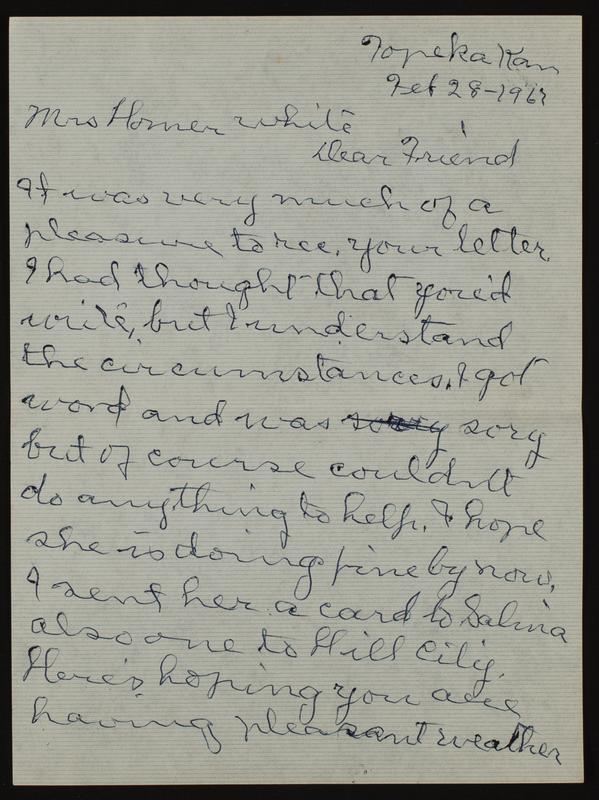 Topeka Kan
Feb 28-1967
Mrs Homer White
Dear Friend
It was very much of a
pleasure to rec. your letter.
I had thought that you'd
write, but I understand
the circumstances. I got
word and was sorry sory
but of course couldn't
do anything to help. I hope
she is doing fine by now.
I sent her a card to Salina
also one to Hill City.
Here's hoping you are
having pleasant weather